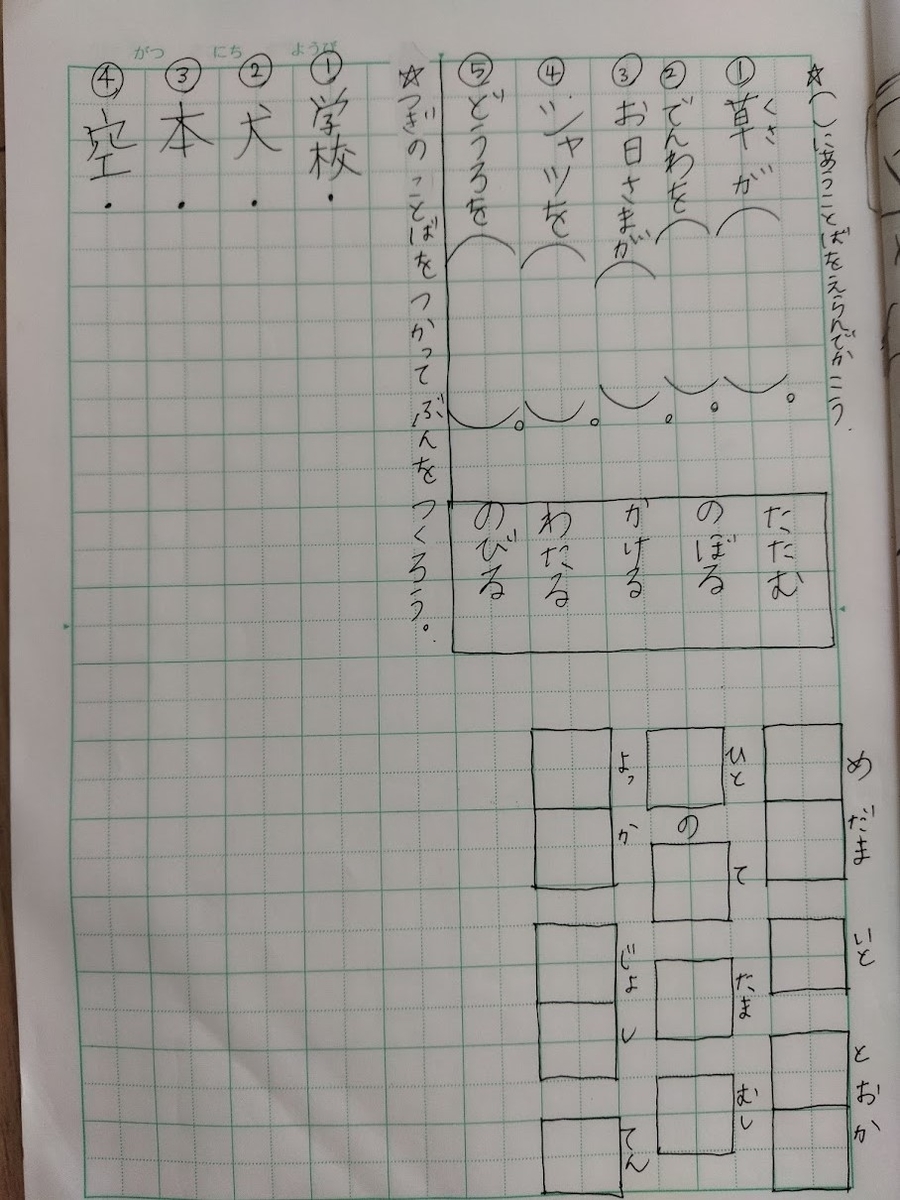 がつ にち ようび
☆( )にあうことばをえらんでかこう.
①草が( )。
くさ
②でんわを( )。
③お日さまが( )。
④シャツを( )。
⑤どうろを( )。
たたむ
のぼる
かける
わたる
のびる
☆つぎのことばをつかってぶんをつくろう。
①学校・
②犬・
③本・
④空・
めだま
いと
とおか
ひと の て
だま
むし
よっか
じょし
てん